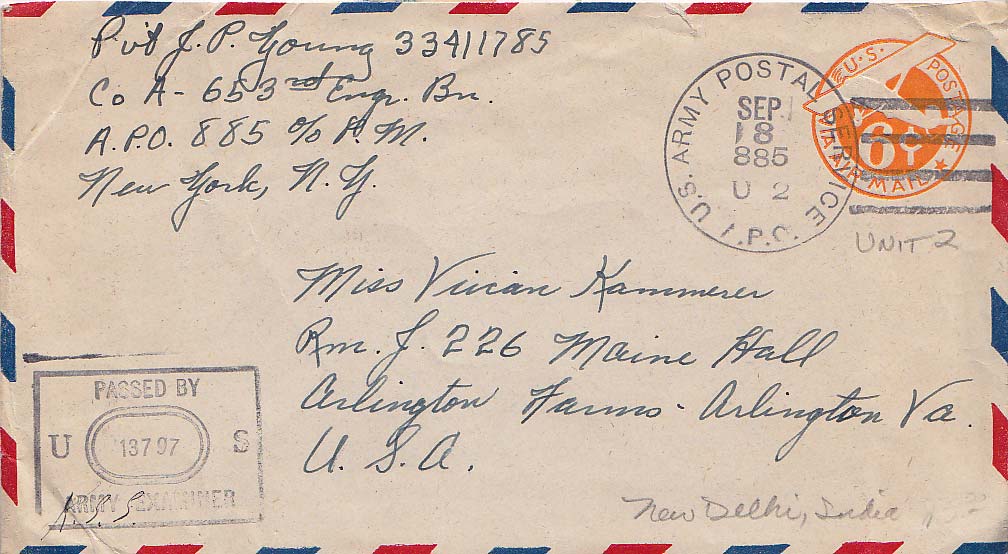 Pvt J. P. Young 33411785
Co A - 653rd Engr. Bn.
A.P.O. 885 c/o P.M.
New York, N.Y.
U.S. ARMY POSTAL SERVICE
SEP
18
885
U 2
A.P.O.
U.S. POSTAGE
6¢
VIA AIR MAIL
UNIT 2
Miss Vivian Kammerer
Rm. J. 226 Maine Hall
Arlington Farms - Arlington Va.
U. S. A.
PASSED BY
U 13797 S
ARMY EXAMINER
New Delhi, India